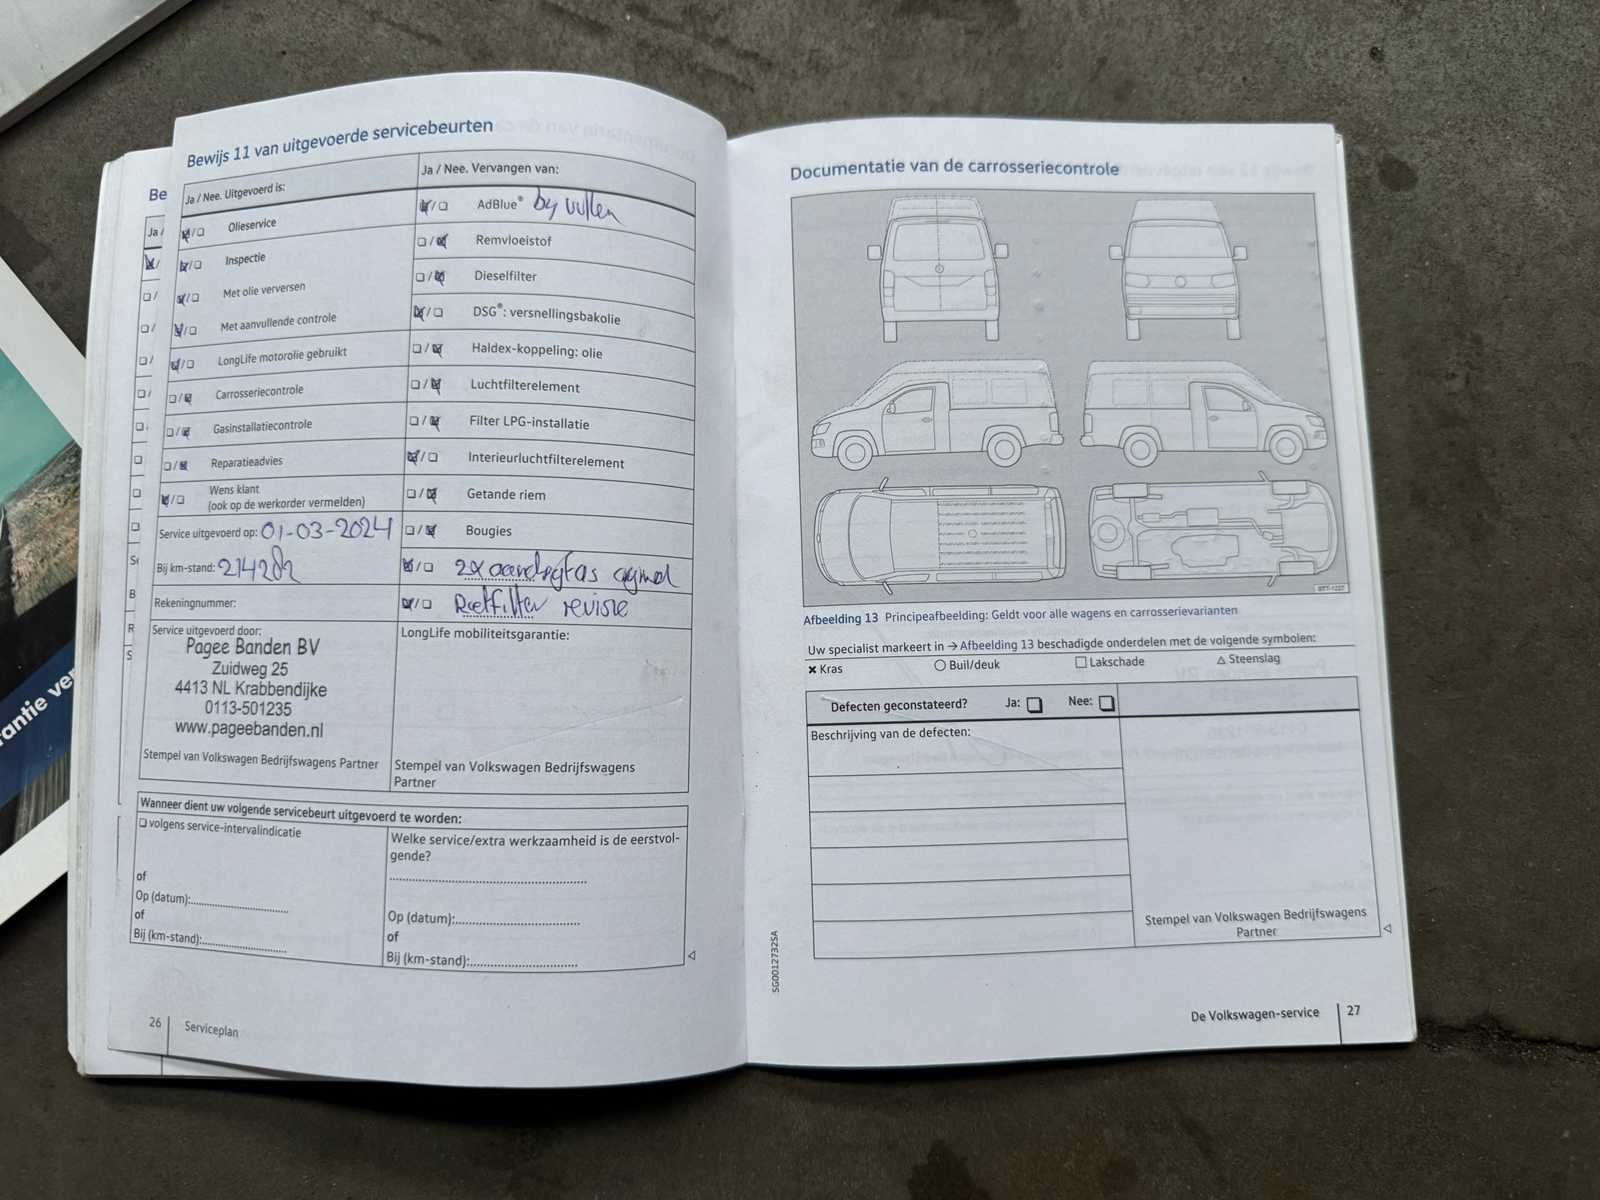 Bewijs 11 van uitgevoerde servicebeurten
Ja / Nee. Uitgevoerd is:
Olieservice
Inspectie
Met olie verversen
Met aanvullende controle
LongLife motorolie gebruikt
Carrosseriecontrole
Gasinstallatiecontrole
Reparatieadvies
Wens klant
(ook op de werkorder vermelden)
Service uitgevoerd op: 01-03-2024
Bij km-stand: 214282
Rekeningnummer:
Service uitgevoerd door:
Pagee Banden BV
Zuidweg 25
4413 NL Krabbendijke
0113-501235
www.pageebanden.nl
Stempel van Volkswagen Bedrijfswagens Partner
Ja / Nee. Vervangen van:
AdBlue® bijvullen
Remvloeistof
Dieselfilter
DSG®: versnellingsbakolie
Haldex-koppeling: olie
Luchtfilterelement
Filter LPG-installatie
Interieurluchtfilterelement
Getande riem
Bougies
2x aandrijfas
Roetfilter revisie
LongLife mobiliteitsgarantie:
Stempel van Volkswagen Bedrijfswagens
Partner
Wanneer dient uw volgende servicebeurt uitgevoerd te worden:
volgens service-intervalindicatie
of
Op (datum):
of
Bij (km-stand):
Welke service/extra werkzaamheid is de eerstvol-
gende?
Op (datum):
of
Bij (km-stand):
26 Serviceplan
Be
Ja /
antie ver
Documentatie van de carrosseriecontrole
BTT-1227
Afbeelding 13 Principeafbeelding: Geldt voor alle wagens en carrosserievarianten
Uw specialist markeert in → Afbeelding 13 beschadigde onderdelen met de volgende symbolen:
✖ Kras ○ Buil/deuk □ Lakschade △ Steenslag
Defecten geconstateerd? Ja: Nee:
Beschrijving van de defecten:
Stempel van Volkswagen Bedrijfswagens
Partner
SG0012732SA
De Volkswagen-service 27